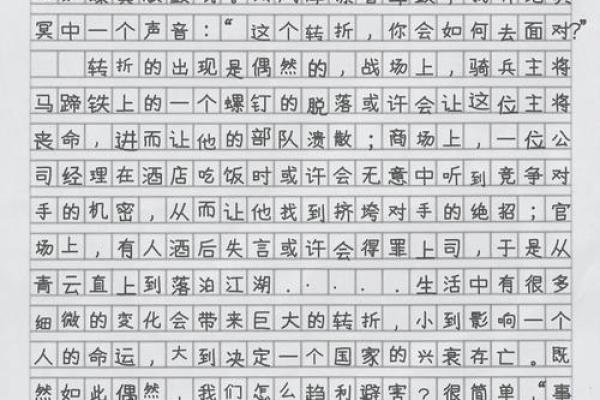 冥中一个声音：“这个转折，你会如何去面对？”
转折的出现是偶然的，战场上，骑兵主将
马蹄铁上的一个螺钉的脱落或许会让这位主将
丧命，进而让他的部队溃散；商场上，一位公
司经理在酒店吃饭时或许会无意中听到竞争对
手的机密，从而让他找到挤垮对手的绝招；官
场上，有人酒后失言或许会得罪上司，于是从
青云直上到落泊江湖．．．．生活中有很多
细微的变化会带来巨大的转折，小到影响一个
人的命运，大到决定一个国家的兴衰存亡。既
然如此偶然，我们怎么趋利避害？很简单，“事